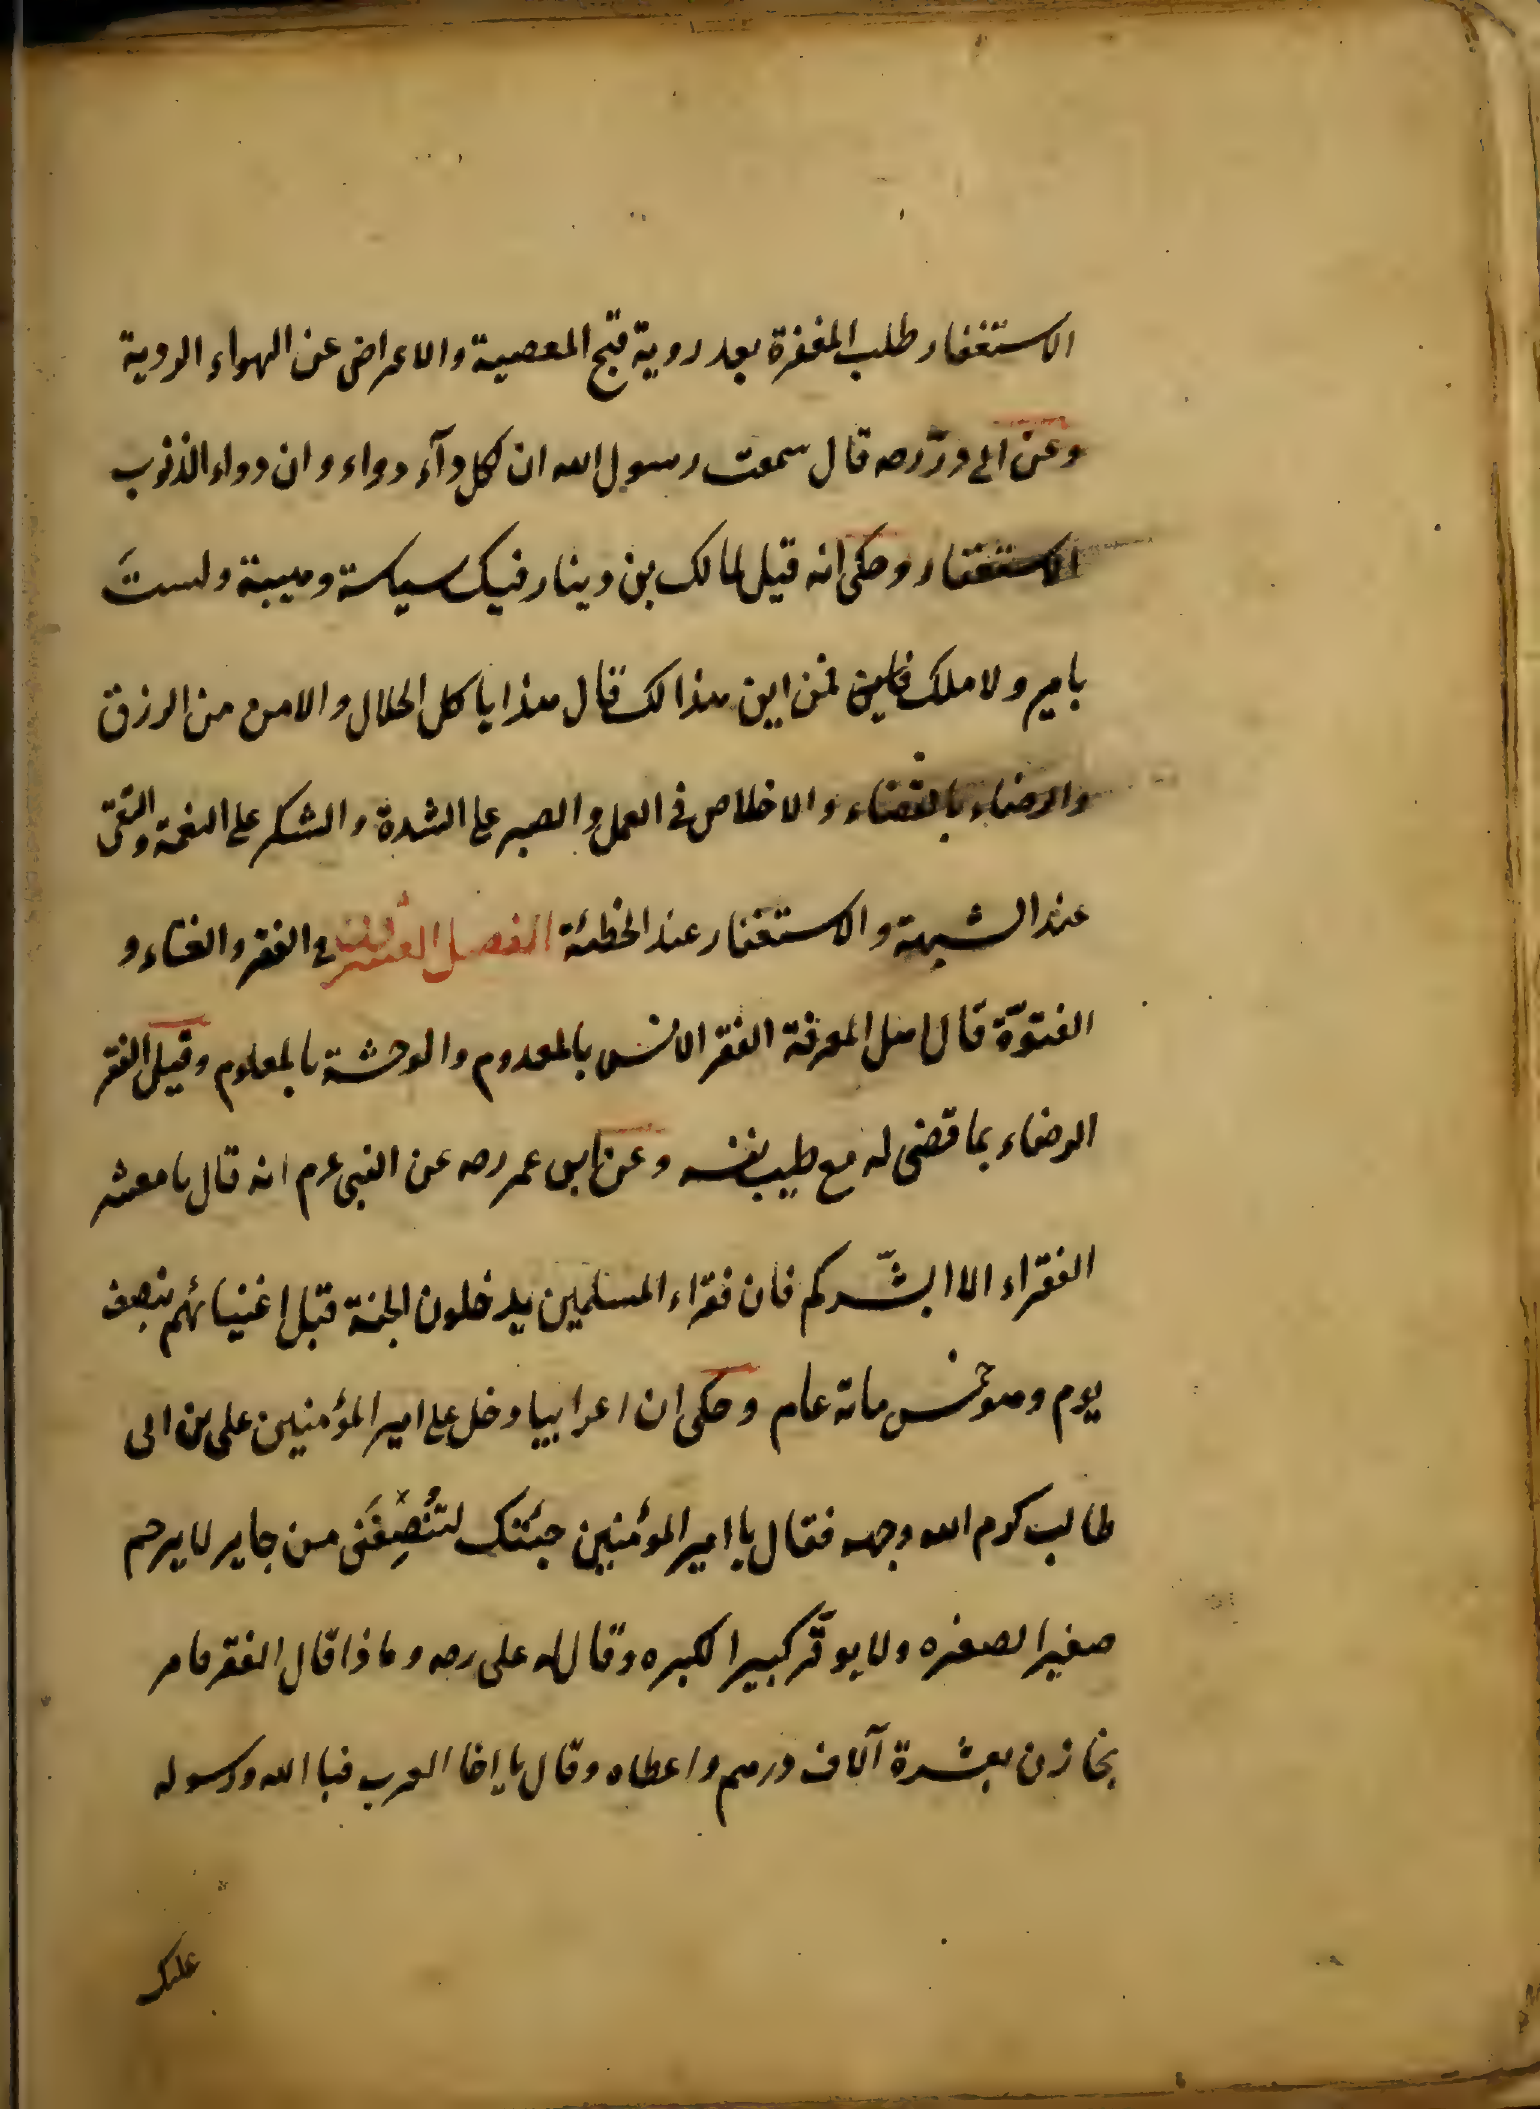 الاستغفار طلب المغفرة بعد روية قبح المعصية والاعراض عن الهواء الردية
وعن ابى ذرّ رصه قال سمعت رسول الله ان لكل دآء دواء وان دواء الذنوب
الاستغفار وحكى انه قيل لمالك بن دينار فيك سياسة وهيبة ولستَ
بامير ولا ملك فمن اين هذا لك قال هذا باكل الحلال والامن من الرزق
والرضاء بالقضاء والاخلاص فى العمل والصبر على الشدة والشكر على النعمة والتقى
عند الشبهة والاستغفار عند الخطئة الفصل العشرون فى الفقر والغناء و
الفتوّة قال اهل المعرفة الفقر الانس بالمعدوم والوحشة بالمعلوم وقيل الفقر
الرضاء بما قضى له مع طيب نفسه وعن ابن عمر رصه عن النبى عم انه قال يا معشر
الفقراء الا ابشّركم فان فقراء المسلمين يدخلون الجنة قبل اغنيائهم بنصف
يوم وهو خمس مائة عام وحكى ان اعرابيا دخل على امير المؤمنين على بن ابى
طالب كرم الله وجهه فقال يا امير المؤمنين جئتك لتُنْصِفَنى من جاير لا يرحم
صغيرا لصغره ولا يوقّر كبيرا لكبره وقال له على رصه وماذا قال الفقر فامر
بخازن بعشرة آلاف درهم واعطاه وقال يا اخا العرب فبا الله ورسوله
عليك